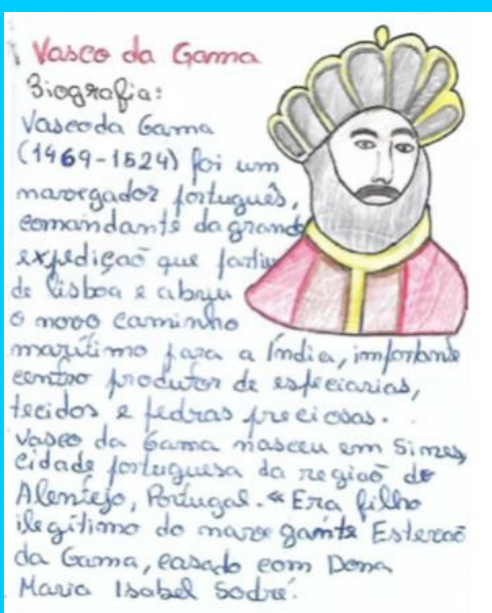 Vasco da Gama
Biografia:
Vasco da Gama
(1469-1524) foi um
navegador português,
comandante da grande
expedição que partiu
de Lisboa e abriu
o novo caminho
marítimo para a Índia, importante
centro produtor de especiarias,
tecidos e pedras preciosas.
Vasco da Gama nasceu em Sines,
cidade portuguesa da região do
Alentejo, Portugal. "Era filho
ilegítimo do navegante Estevão
da Gama, casado com Dona
Maria Isabel Sodré.